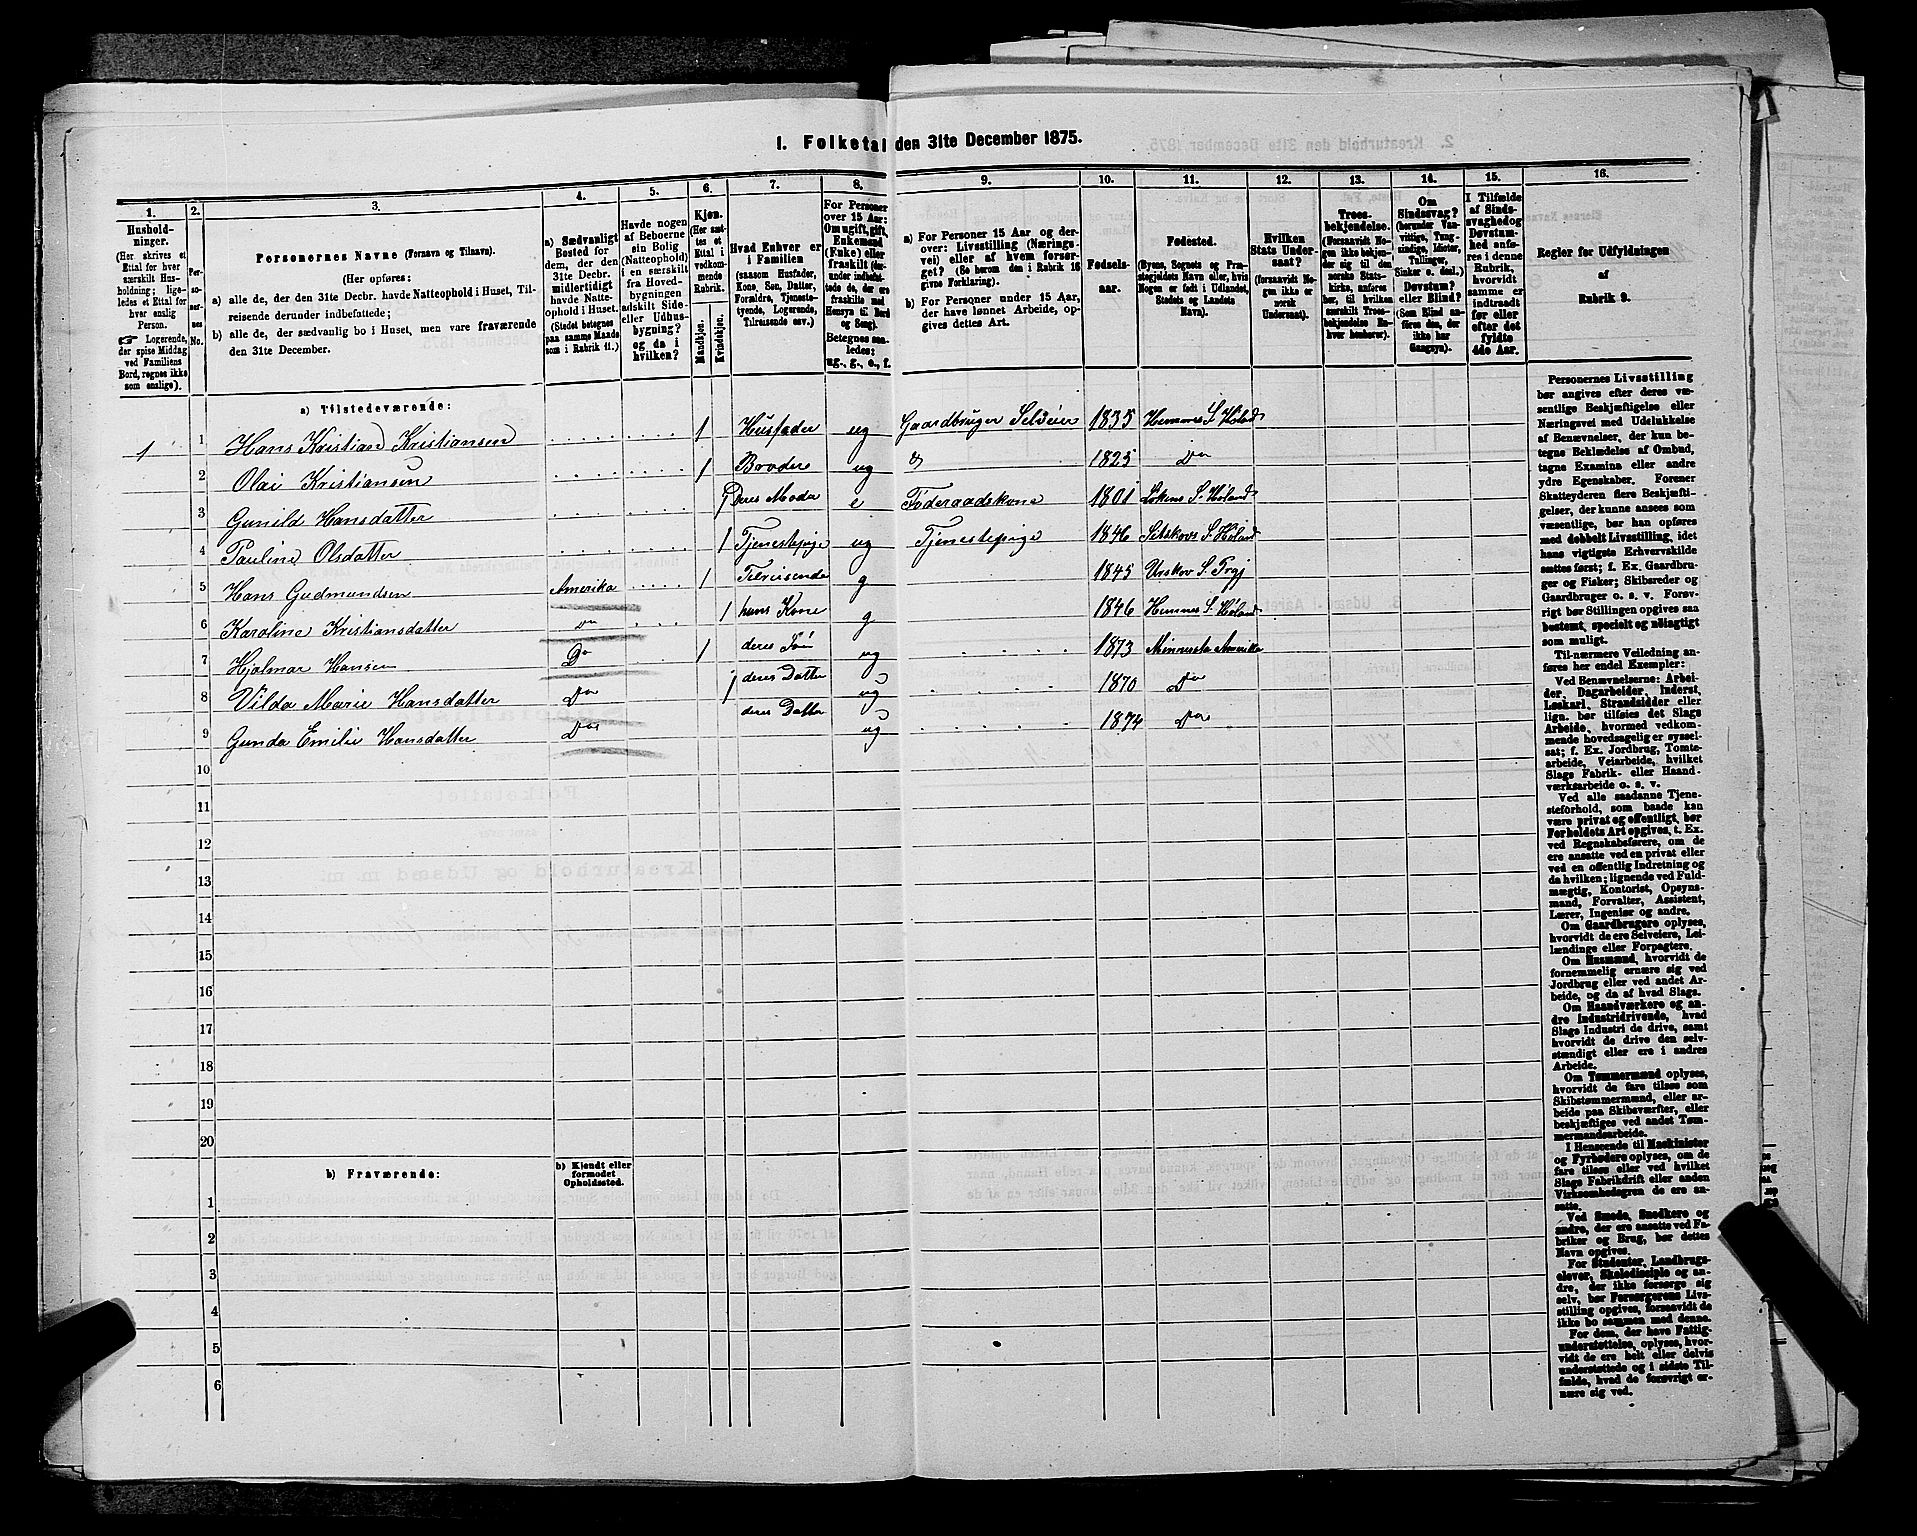 1. Folketal den 31te December 1875.
1.
2.
3.
4.
5.
6.
7.
8.
9.
10.
11.
12.
13.
14.
15.
16.
Hushold-
ninger.
(Her skrives et
Ettal for hver
særskilt Hus-
holdning; lige-
ledes et Ettal for
hver enslig
Person.
☞ Logerende,
der spise Middag
ved Familiens
Bord, regnes ikke
som enslige).
Per-
so-
ner-
nes
No.
Personernes Navne (Fornavn og Tilnavn).
(Her opføres:
a) alle de, der den 31te Decbr. havde Natteophold i Huset, Til-
reisende derunder indbefattede;
b) alle de, der sædvanlig bo i Huset, men vare fraværende
den 31te December.
a) Sædvanligt
Bosted for
dem, der den
31te Decbr.
midlertidigt
havde Natte-
ophold i Huset.
(Stedet betegnes
paa samme Maade
som i Rubrik 11.)
Havde nogen
af Beboerne
sin Bolig
(Natteophold)
i en særskilt
fra Hoved-
bygningen
adskilt Side-
eller Udhus-
bygning?
og da i
hvilken?
Kjøn.
(Her sæt-
tes et
Ettal i
vedkom-
mende
Rubrik.
Mandkjøn.
Kvindekjøn.
Hvad Enhver er
i Familien
(saasom Husfader,
Kone, Søn, Datter,
Forældre, Tjeneste-
tyende, Logerende,
Tilreisende osv.)
For Personer
over 15 Aar:
Om ugift, gift,
Enkemand
(Enke) eller
fraskilt
Betegnes saa-
ledes:
ug., g., e., f.
a) For Personer 15 Aar og der-
over: Livsstilling (Nærings-
vei) eller af hvem forsør-
get? (Se herom den i Rubrik 16
givne Forklaring).
b) For Personer under 15 Aar,
der have lønnet Arbeide, op-
gives dettes Art.
Fødsels-
aar.
Fødested.
(Byens, Sognets og Præ-
stegjeldets Navn eller, hvis
Nogen er født i Udlandet,
Stedets og Landets
Navn).
Hvilken
Stats Under-
saat?
(forsaavidt No-
gen ikke er
norsk
Undersaat).
Troes-
bekjendelse.
(Forsaavidt No-
gen ikke bekjen-
der sig til den
norske Stats-
kirke, anføres
her, til hvilken
særskilt Troes-
bekjendelse En-
hver henhører).
Om
Sindssvag?
(herunder Van-
vittige, Tung-
sindige, Idioter,
Tullinger,
Sinker o. desl.)
Døvstum?
eller Blind?
(Som Blind an-
føres den, der
ikke har
Gangsyn).
I Tilfælde
af Sinds-
svaghed og
Døvstum-
hed anfø-
res i denne
Rubrik,
hvorvidt
samme er
indtraadt
før eller
efter det
fyldte
4de Aar.
Regler for Udfyldningen
af
Rubrik 9.
a) Tilstedeværende:
1 1 Hans Kristian Kristiansen 1 Husfader ug Gaardbruger Selveier 1835 Hemnes S. Høland
2 Olai Kristiansen 1 Broder ug 1825 Do
3 Gunild Hansdatter 1 Deres Moder e Føderaadskone 1801 Løkens S. Høland
4 Pauline Olsdatter 1 Tjenestepige ug Tjenestepige 1846 Setskovs S. Høland
5 Hans Gudmundsen Amerika 1 Tilreisende g 1845 Urskov S. Prgj
6 Karoline Kristiansdatter Do 1 hans Kone g 1846 Hemnes S. Høland
7 Hjalmar Hansen Do 1 deres Søn ug 1873 Minnesota Amerika
8 Vilda Marie Hansdatter Do 1 deres Datter ug 1870 Do
9 Gunda Emilie Hansdatter Do deres Datter ug 1874 Do
10
11
12
13
14
15
16
17
18
19
20
b) Fraværende:
b) Kjendt eller
formodet
Opholdssted.
1
2
3
4
5
6
Personernes Livsstilling
bør angives efter deres væ-
sentlige Beskjæftigelse eller
Næringsvei med Udelukkelse
af Benævnelser, der kun be-
tegne Beklædelse af Ombud,
tagne Examina eller andre
ydre Egenskaber. Forener
Skatteyderen flere Beskjæfti-
gelser, der kunne ansees som
væsentlige, bør han opføres
med dobbelt Livsstilling, idet
hans vigtigste Erhvervskilde
sættes først; f. Ex. Gaardbru-
ger og Fisker; Skibsreder og
Gaardbruger o. s. v. Forøv-
rigt bør Stillingen opgives saa
bestemt, specielt og nøiagtigt
som muligt.
Til nærmere Veiledning an-
føres her endel Exempler:
Ved Benævnelserne: Arbei-
der, Dagarbeider, Inderst,
Løskarl, Strandsidder eller
lign. bør tilføies det Slags
Arbeide, hvormed vedkom-
mende hovedsagelig er syssel-
sat; f. Ex. Jordbrug, Tomte-
arbeide, Veiarbeide, hvilket
Slags Fabrik- eller Haand-
værksarbeide o. s. v.
Ved alle saadanne Tjene-
steforhold, som baade kan
være privat og offentligt, bør
Forholdets Art opgives, t. Ex.
ved Regnskabsførere, om de
ere ansatte ved en privat eller
ved en offentlig Indretning og
da hvilken; lignende ved Fuld-
mægtig, Kontorist, Opsyns-
mand, Forvalter, Assistent,
Lærer, Ingeniør og andre.
Om Gaardbrugere oplyses,
hvorvidt de ere Selveiere, Lei-
lændinge eller Forpagtere.
Om Husmænd, hvorvidt de
fornemmelig ernære sig ved
Jordbrug eller ved andet Ar-
beide, og da af hvad Slags.
Om Haandværkere og an-
dre Industridrivende, hvad
Slags Industri de drive, samt
hvorvidt de drive den selv-
stændigt eller ere i andres
Arbeide.
Om Tømmermænd oplyses,
hvorvidt de fare tilsøs som
Skibstømmermænd, eller ar-
beide paa Skibsværfter, eller
beskjæftiges ved andet Tøm-
mermandsarbeide.
I Henseende til Maskinister
og Fyrbødere oplyses, om de
fare tilsøs eller ved hvilket
Slags Fabrikdrift eller anden
Virksomhedsgren de ere an-
satte.
Ved Smede, Snedkere og
andre, der ere ansatte ved Fa-
briker og Brug, bør dettes
Navn opgives.
For Studenter, Landbrugs-
elever, Skoledisciple og an-
dre, der ikke forsørge sig
selv, bør Forsørgerens Livs-
stilling opgives, forsaavidt de
ikke bo sammen med denne.
For dem, der have Fattig-
understøttelse, oplyses, hvor-
vidt de ere helt eller delvis
understøttede og i sidste Til-
fælde, hvad de forøvrigt er-
nære sig ved.